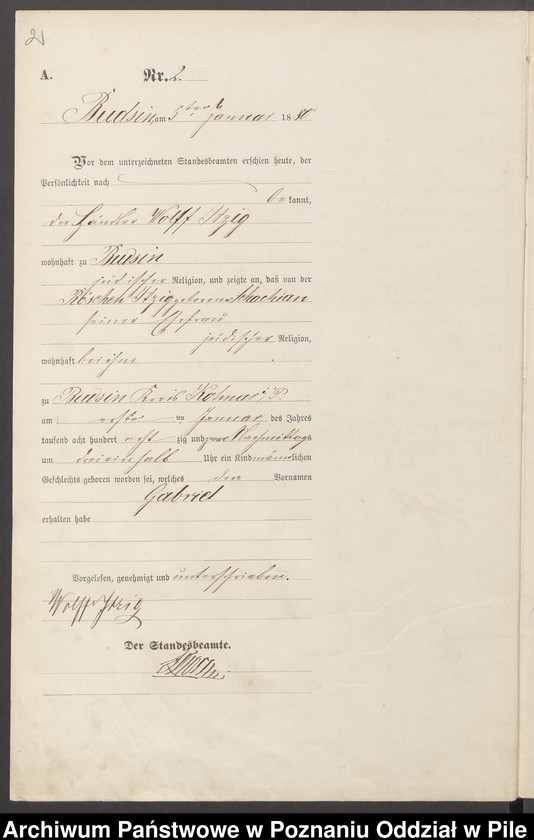 2
A. Nr. 2.
Budsin, am 5ten Januar 1880
Vor dem unterzeichneten Standesbeamten erschien heute, der
Persönlichkeit nach
bekannt,
der Händler Wolff Itzig
wohnhaft zu Budsin
jüdischer Religion, und zeigte an, daß von der
Röschen Itzig geborenen Schachian
seiner Ehefrau
jüdischer Religion,
wohnhaft bei ihm
zu Budsin Kreis Kolmar i/P.
am ersten Januar des Jahres
tausend acht hundert achtzig und zwar Nachmittags
um dreieinhalb Uhr ein Kind männlichen
Geschlechts geboren worden sei, welches den Vornamen
Gabriel
erhalten habe
Vorgelesen, genehmigt und unterschrieben.
Wolff Itzig
Der Standesbeamte.
Archiwum Państwowe w Poznaniu Oddział w Pile